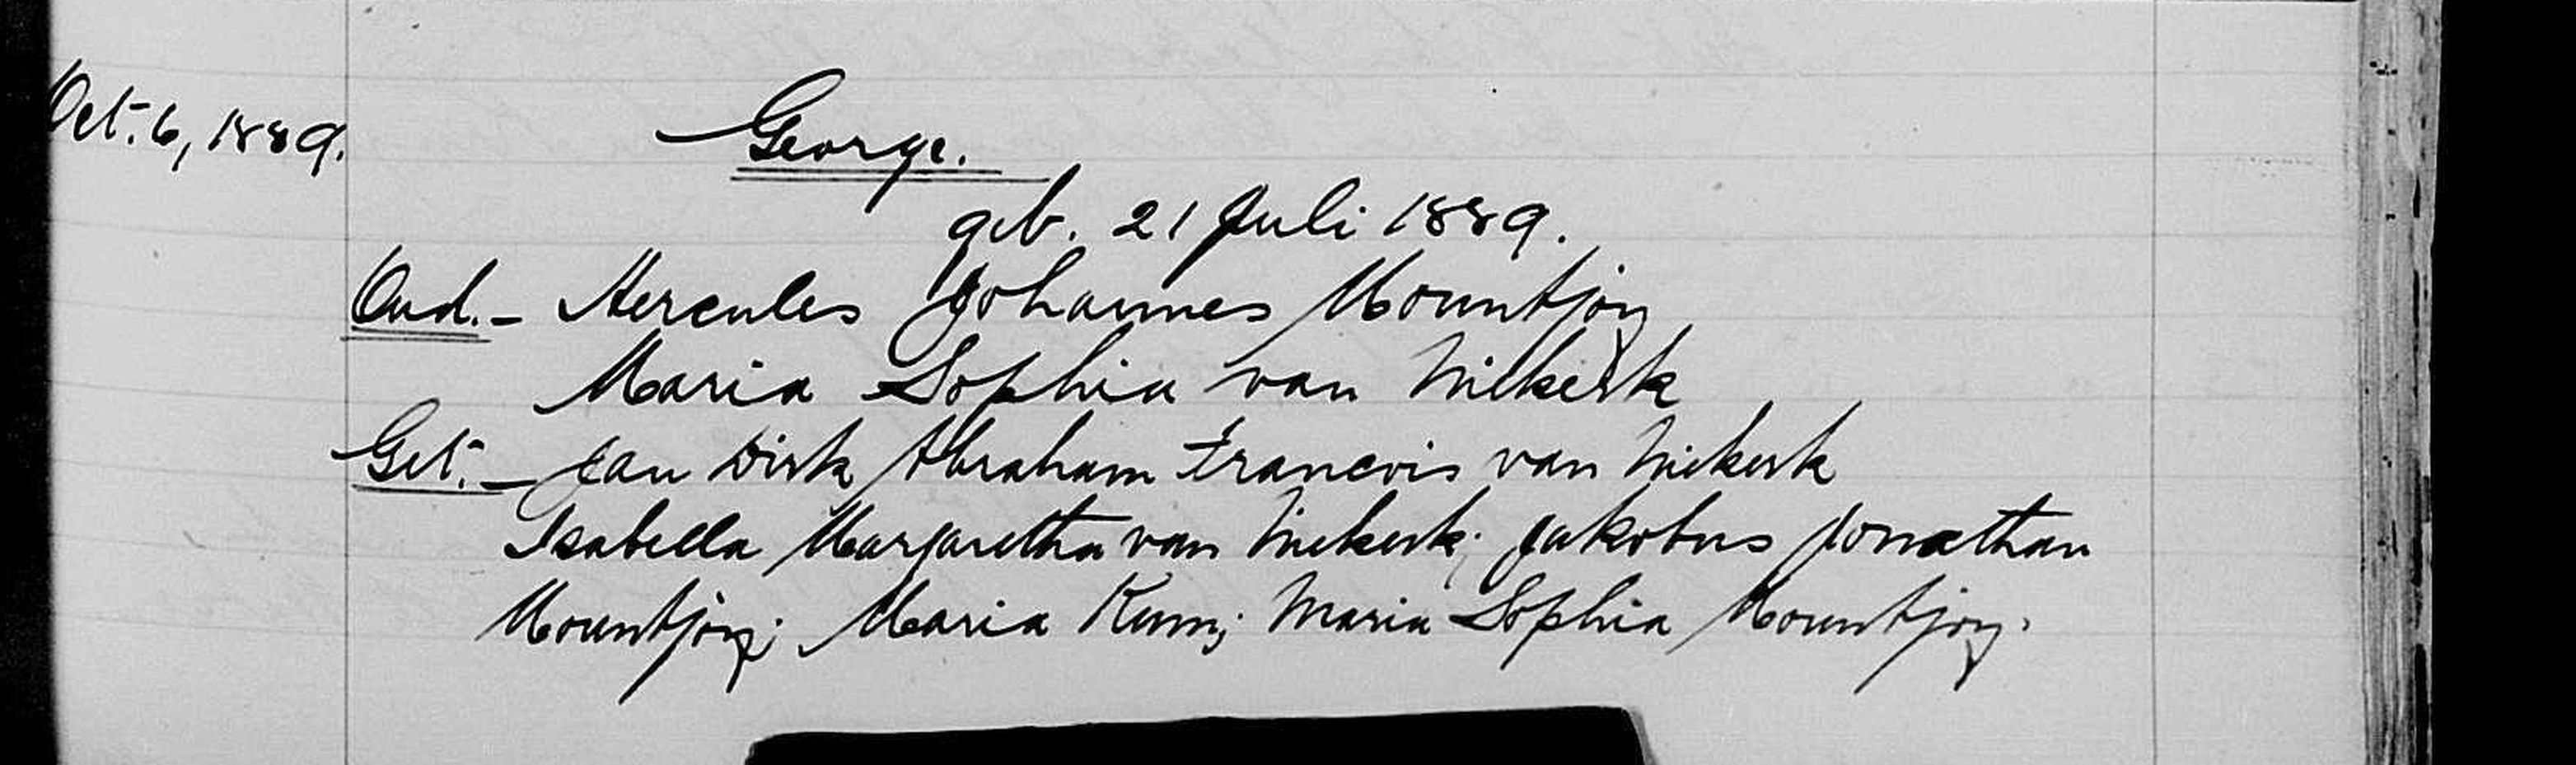 Oct. 6, 1889.
George.
geb. 21 Juli 1889.
Oud. - Hercules Johannes Mountjoy
Maria Sophia van Niekerk
Get. - Jan Dirk Abraham Francois van Niekerk
Isabella Margaretha van Niekerk; Jakobus Jonathan
Mountjoy; Maria ; Maria Sophia Mountjoy.